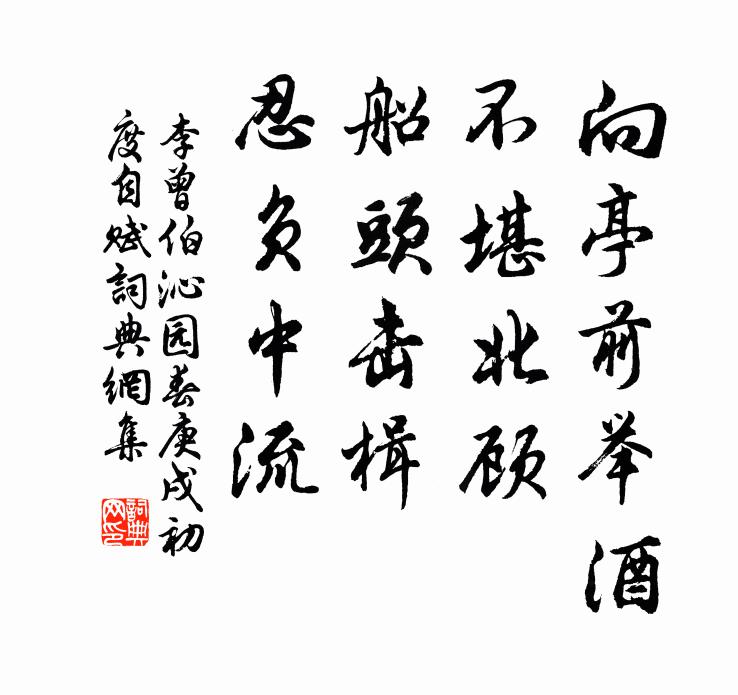 向亭前举酒
不堪北顾
船頭击楫
忍负中流
李曾伯沁园春庚戌初
度自赋詞典網集
詞典
网印